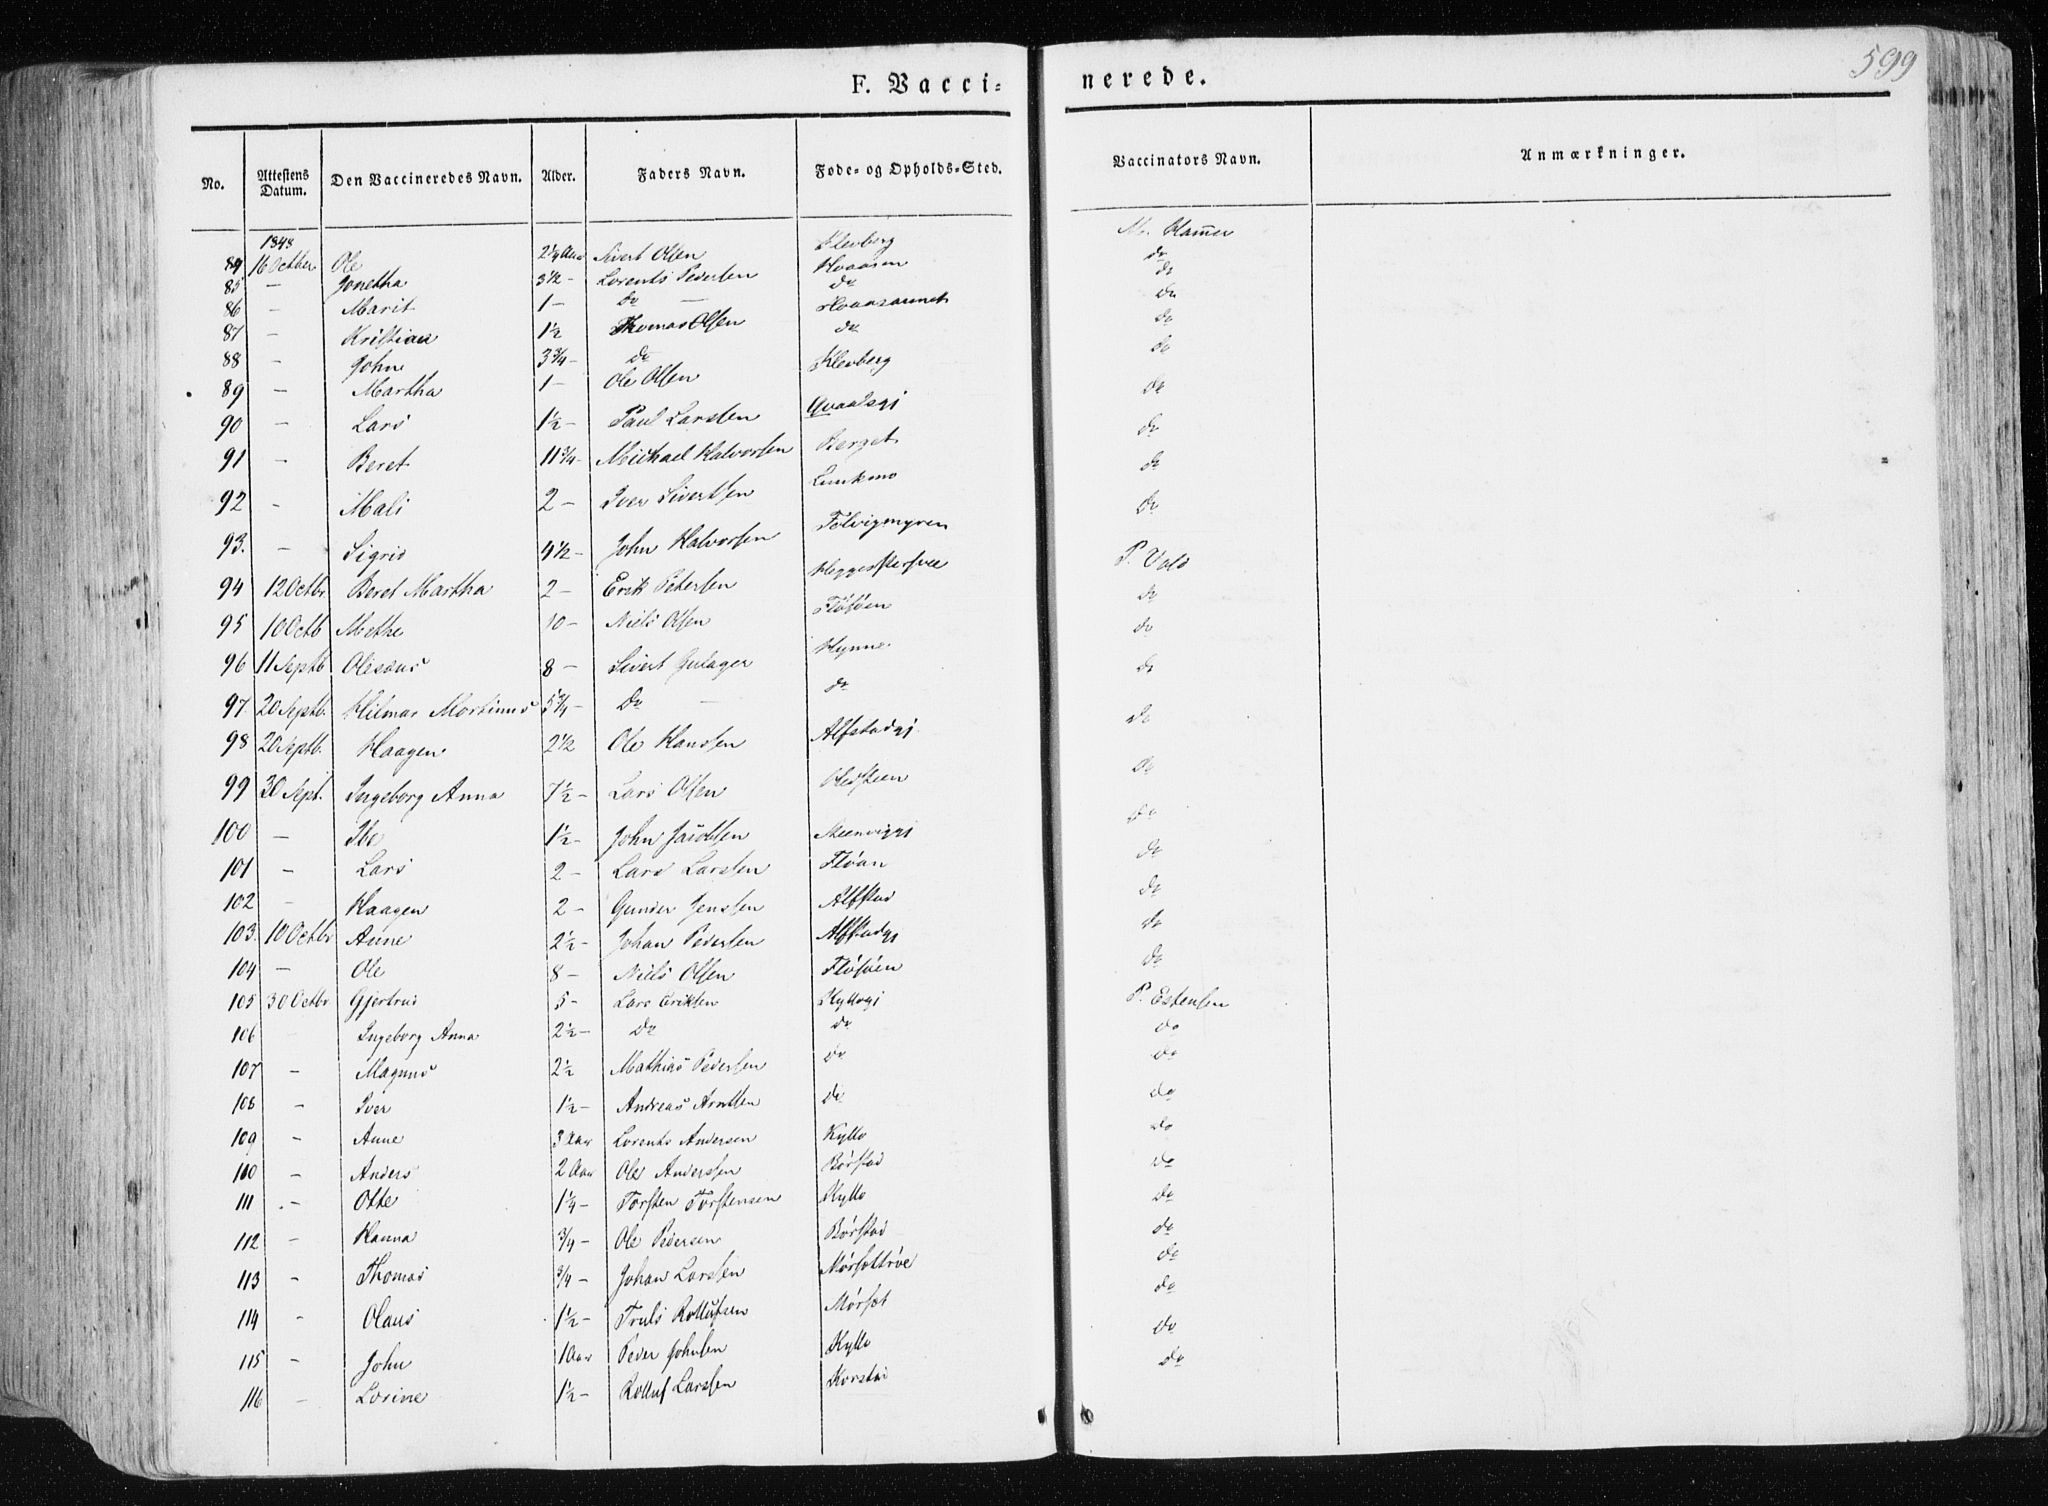 599
F. Vaccinerede.
No. Attestens Datum. Den Vaccineredes Navn. Alder. Faders Navn. Føde- og Opholds-Sted. Vaccinators Navn. Anmærkninger.
1848
84 16 Octber Ole 2 1/4 Aar Sivert Olsen Klevberg M. Hamer
85 – Jonetha 3 1/2 – Lorents Pedersen Hvaasen do
86 – Marit 1 – do – do do
87 – Kristian 1 1/2 Thomas Olsen Hvaasaunet do
88 – John 3 3/4 – do do do
89 – Martha 1 – Ole Olsen Klevberg do
90 – Lars 1 1/2 – Paul Larsen Qvaalsgj do
91 – Beret 11 3/4 – Michael Halvorsen Berget do
92 – Mali 2 – Iver Sivertsen Lunkmo do
93. – Sigrid 4 1/2 – John Halvorsen Folvigmyren do
94 12 Octbr Beret Martha 2 – Erik Petersen P. Vold
95 10 Octb Methe 10 – Niels Olsen Fløsøen do
96 11 Septb Olieaus 8 – Sivert Hynne do
97 20 Septb. Hilmar Martinus 5 3/4 – Do – do do
98 20 Septb. Haagen 2 1/2 Ole Hansen Alfstadgj do
99 30 Sept. Ingeborg Anna 7 1/2 – Lars Olsen do
100 – 1 1/2 – John Jacobsen Steenviggj do
101 – Lars 2 – Lars Larssen Fløan do
102 – Haagen 2 – Gunder Jenssen Alfstad do
103. 10 Octbr Anne 2 1/2 – Johan Pedersen Alfstadgj do
104 – Ole 8 – Niels Olsen Fløsøen do
105 30 Octbr Gjertrud 5 – Lars Eriksen Kyllogj P. Estensen
106 – Ingeborg Anna 2 1/2 – Do do do
107 – Magnus 2 1/2 Mathias Pedersen do do
108 – Iver 1 1/2 – Andreas Arntsen do do
109 – Anne 3 Aar Lorents Andersen Kyllo do
110 – Anders 2 Aar Ole Anderssen Børstad do
111 – Otte 1 1/4 – Torsten Torstensen Kyllo do
112 – Hanna 3/4 – Ole Pedersen Børstad do
113 – Thomas 3/4 – Johan Larssen Mørsettrøe do
114 – Olaus 1 1/2 – Truls Rollufsen Mørset do
115 – John 1 Aar Peder Johnsen Kyllo do
116 – Lorine 1 1/2 – Rolluf Larssen Korstad do